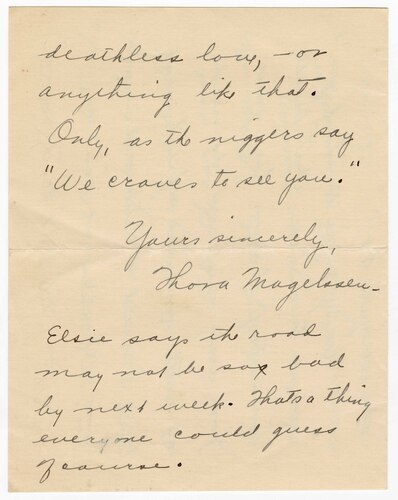 deathless love, - or
anything like that.
Only, as the niggers say
"We craves to see you."
Yours sincerely,
Thora Magelssen -
Elsie says the road
may not be so bad
by next week. Thats a thing
everyone could guess
of course.